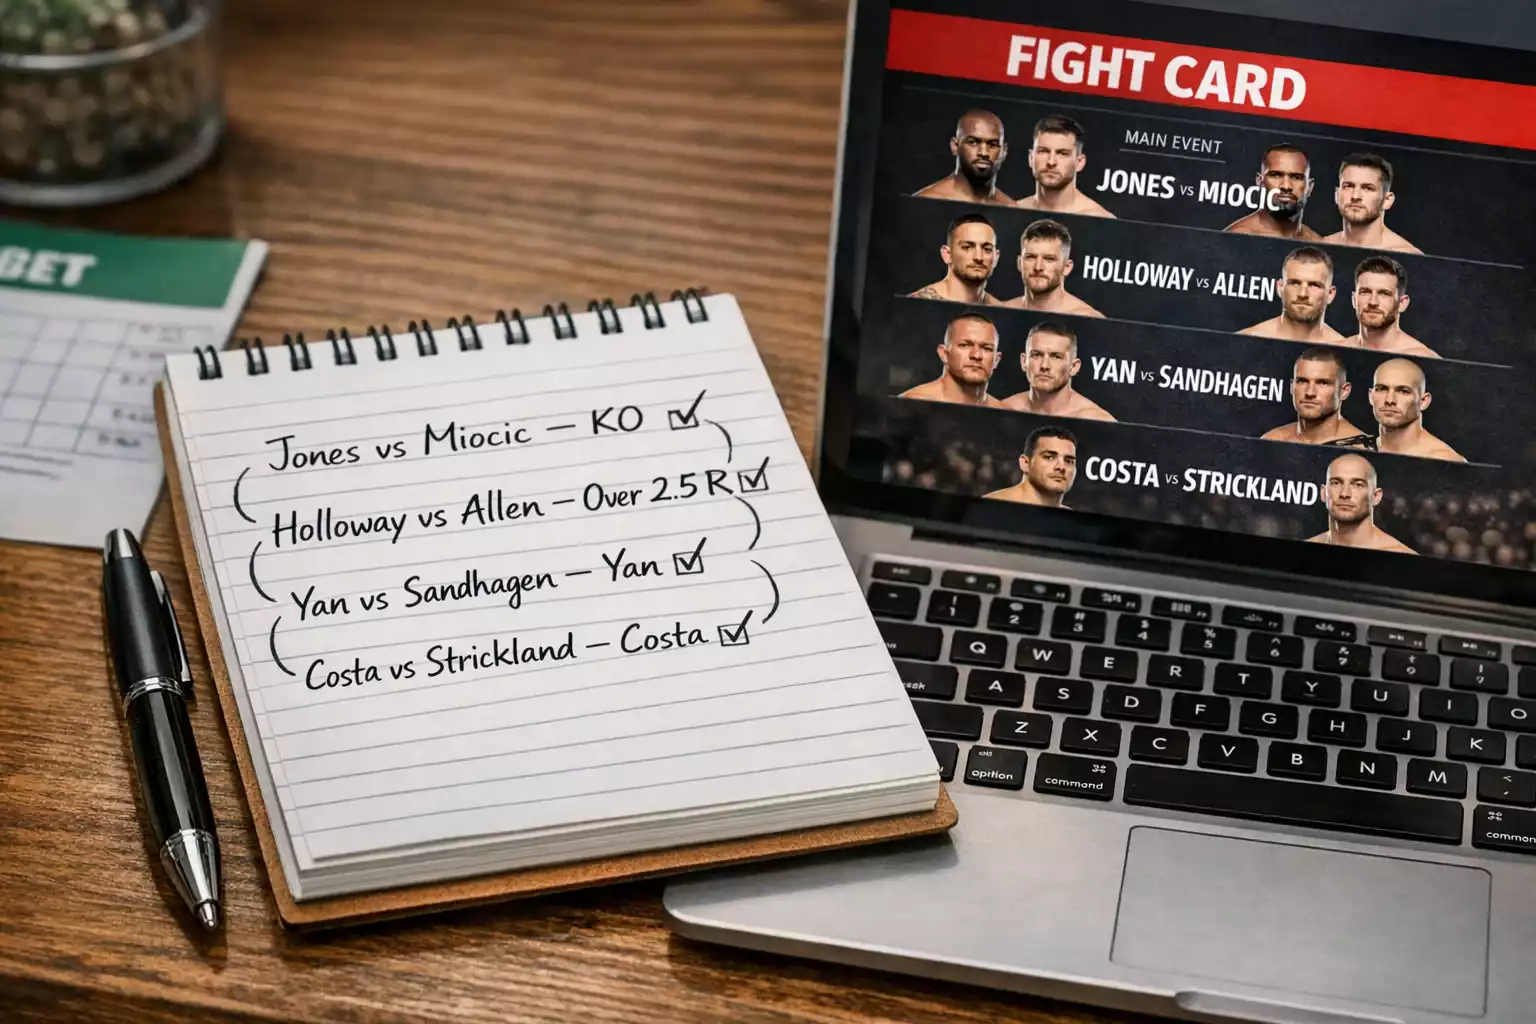 BET
Jones vs Miocic – KO
Holloway vs Allen – Over 2.5 R
Yan vs Sandhagen – Yan
Costa vs Strickland – Costa
FIGHT CARD
MAIN EVENT
JONES vs MIOCIC
HOLLOWAY vs ALLEN
YAN vs SANDHAGEN
COSTA vs STRICKLAND
Q W E R T Y U I O
A S D F G H J K
Z X C V B N M
option command